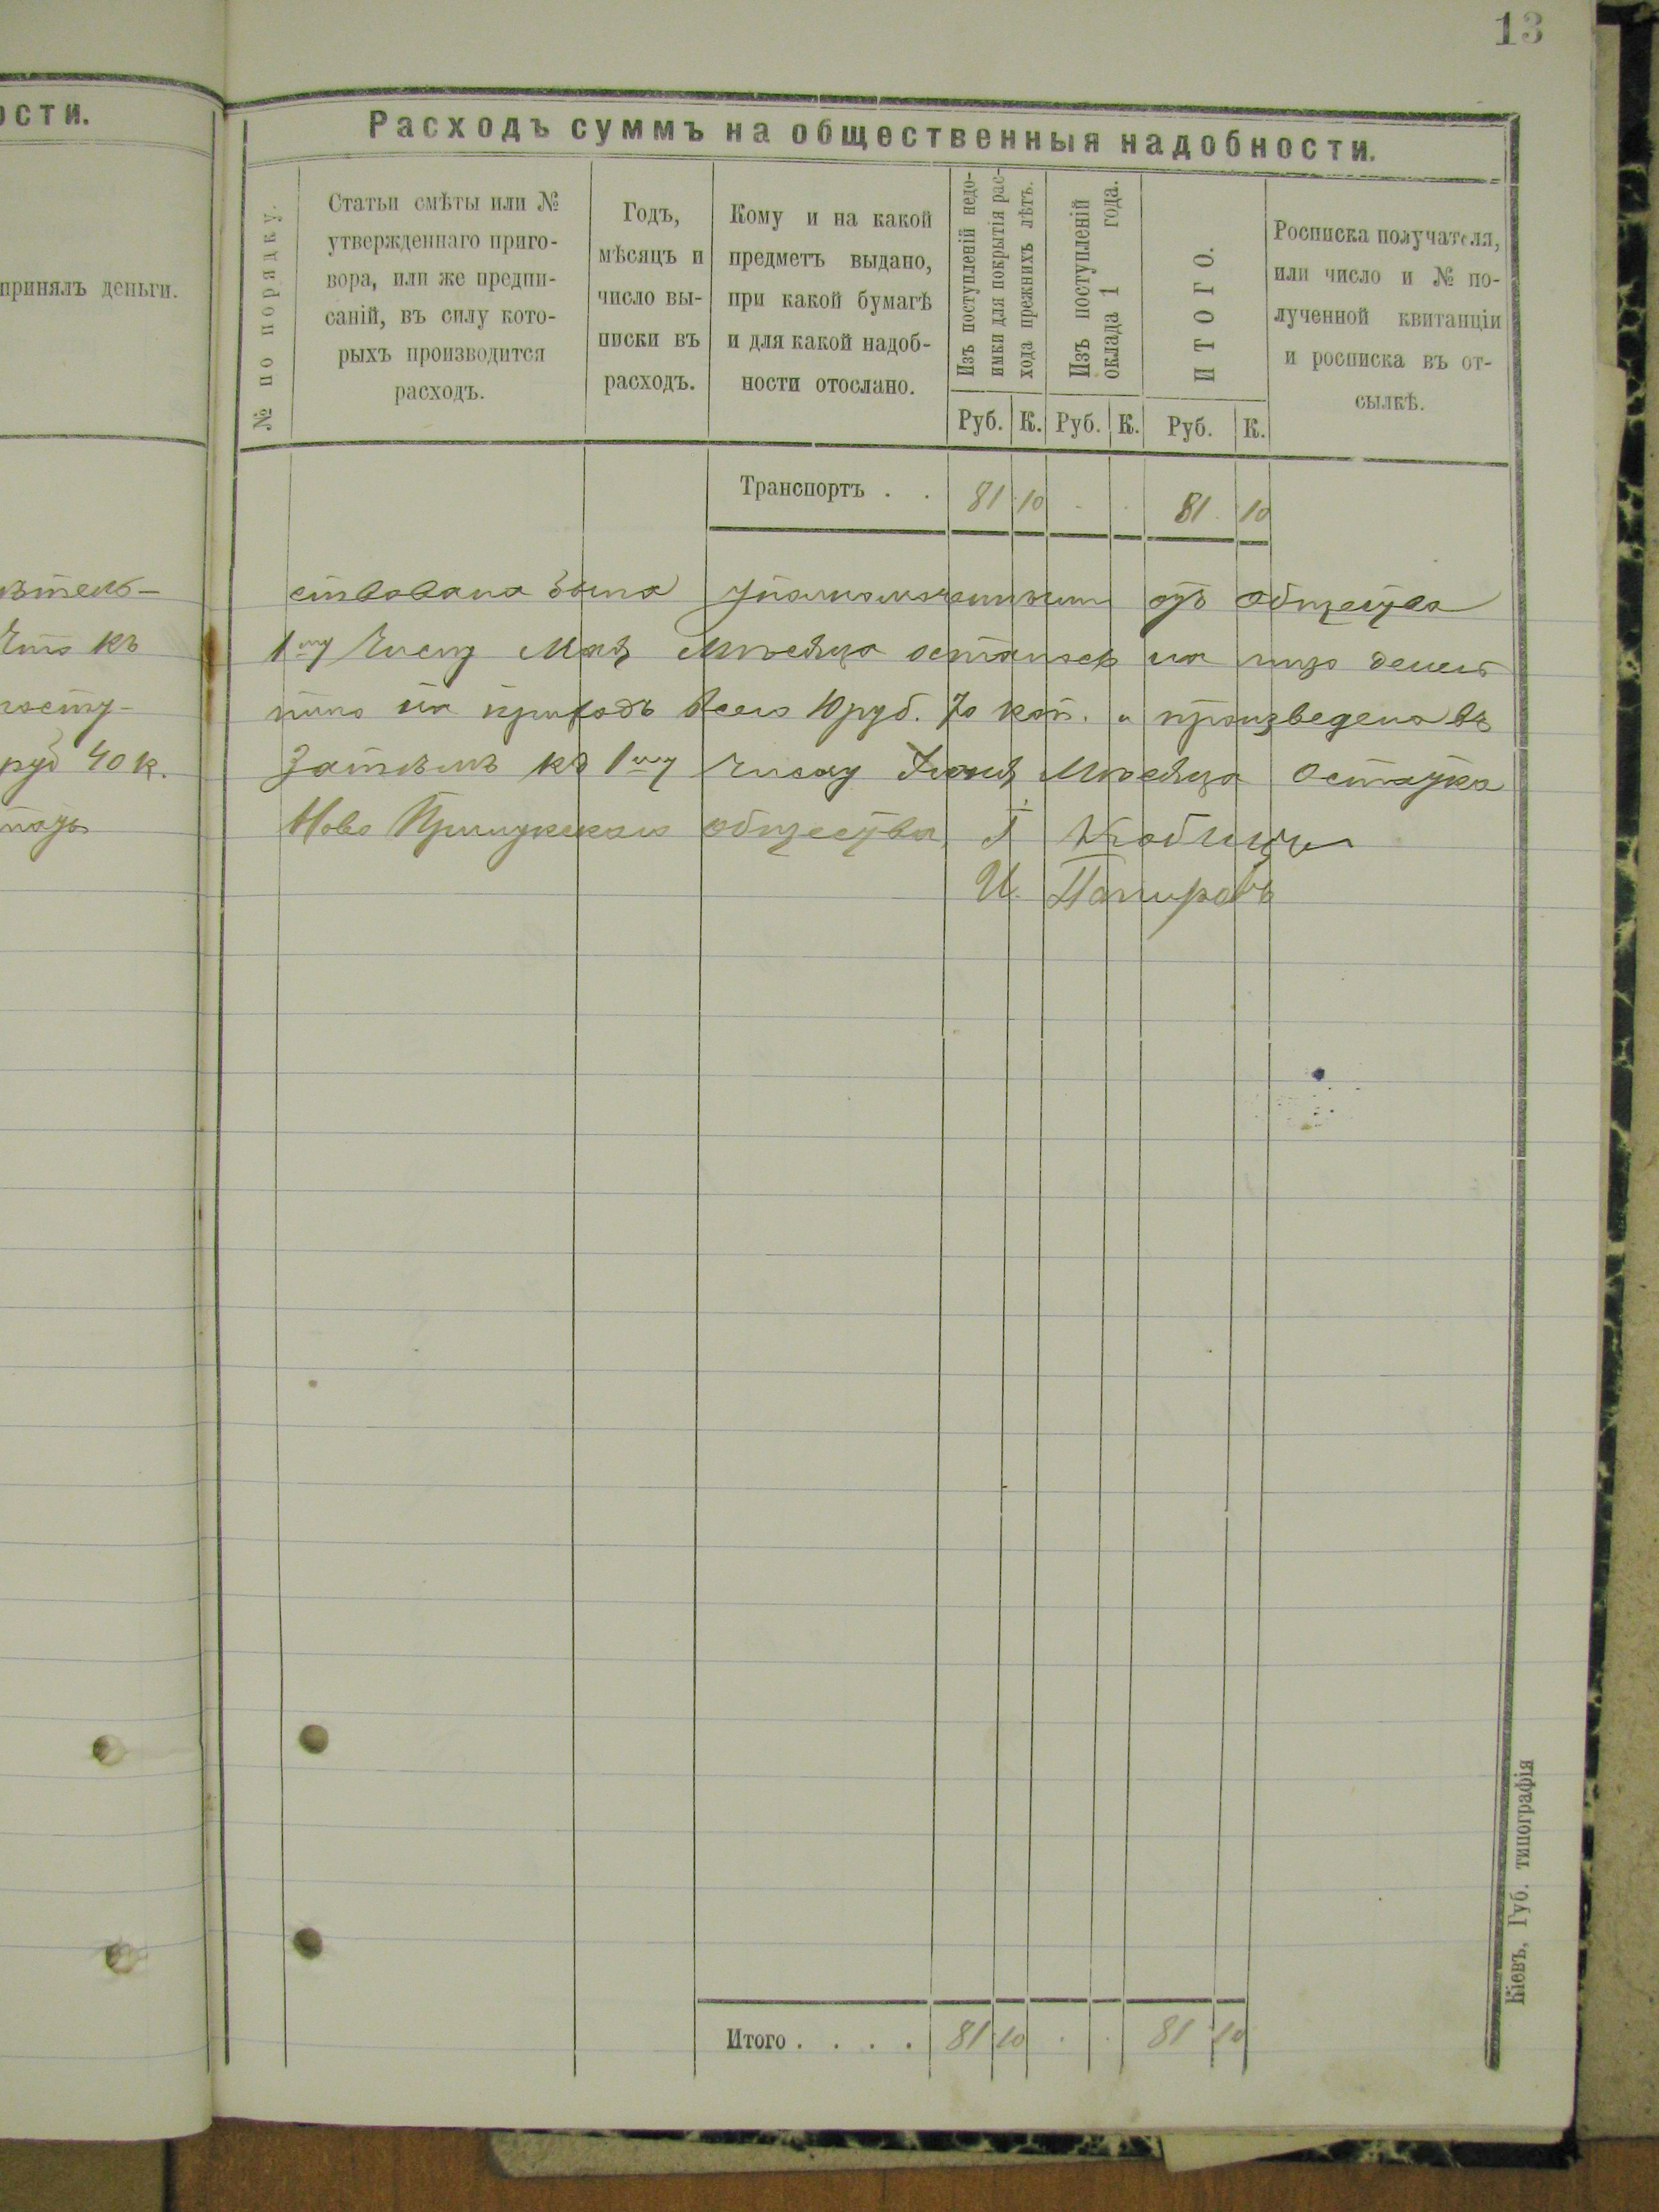 13
ости.
принялъ деньги.
что къ
посту-
руб 40 к.
Расходъ суммъ на общественныя надобности.
№ по порядку.
Статьи смѣты или №
утвержденнаго приго-
вора, или же предпи-
саній, въ силу кото-
рыхъ производится
расходъ.
Годъ,
мѣсяцъ и
число вы-
писки въ
расходъ.
Кому и на какой
предметъ выдано,
при какой бумагѣ
и для какой надоб-
ности отослано.
Изъ поступленій недо-
имки для покрытія рас-
хода прежнихъ лѣтъ.
Изъ поступленій
оклада 1 года.
ИТОГО.
Росписка получателя,
или число и № по-
лученной квитанціи
и росписка въ от-
сылкѣ.
Руб. К. Руб. К. Руб. К.
Транспортъ . . 81 10 - - 81 10
ствована была уполномоченными отъ общества
1му числу Мая Мѣсяца осталось на лицо денегъ
пило на приходъ всего 10 руб. 70 коп. и произведено въ
Затѣмъ къ 1му числу Іюня Мѣсяца Остатка
Ново Прилукскаго общества Г.
И. Папировъ
Итого . . . . 81 10 . . 81 10
Кіевъ, Губ. типографія